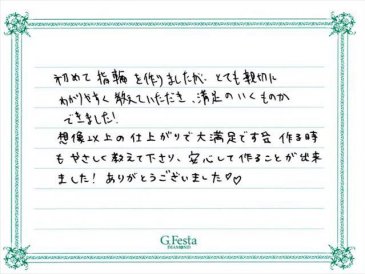 初めて指輪を作りましたが、とても親切に
わかりやすく教えていただき、満足のいくものが
できました!
想像以上の仕上がりで大満足です 作る時
もやさしく教えて下さり、安心して作ることが出来
ました! ありがとうございました♡♡
G.Festa
DIAMOND